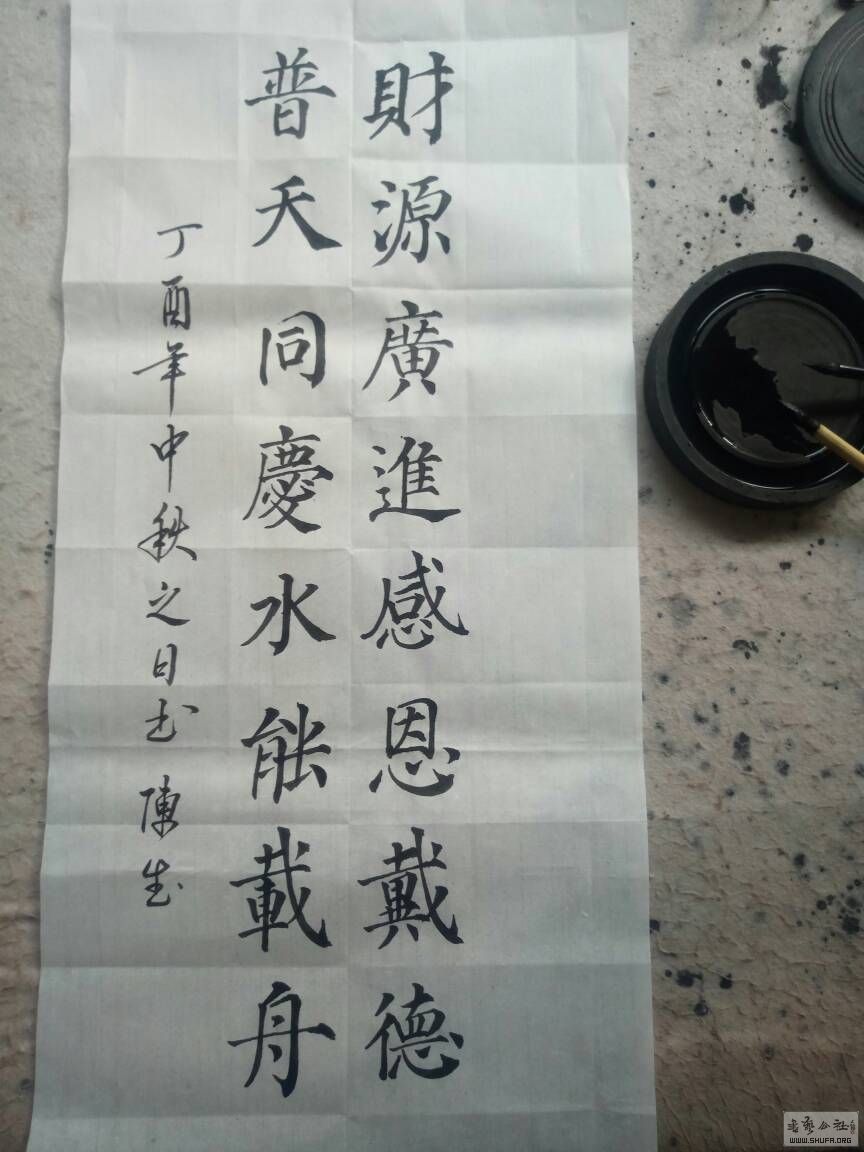 財源廣進感恩戴德
普天同慶水能載舟
丁酉年中秋之日書 陳生
書藝公社
WWW.SHUFA.ORG